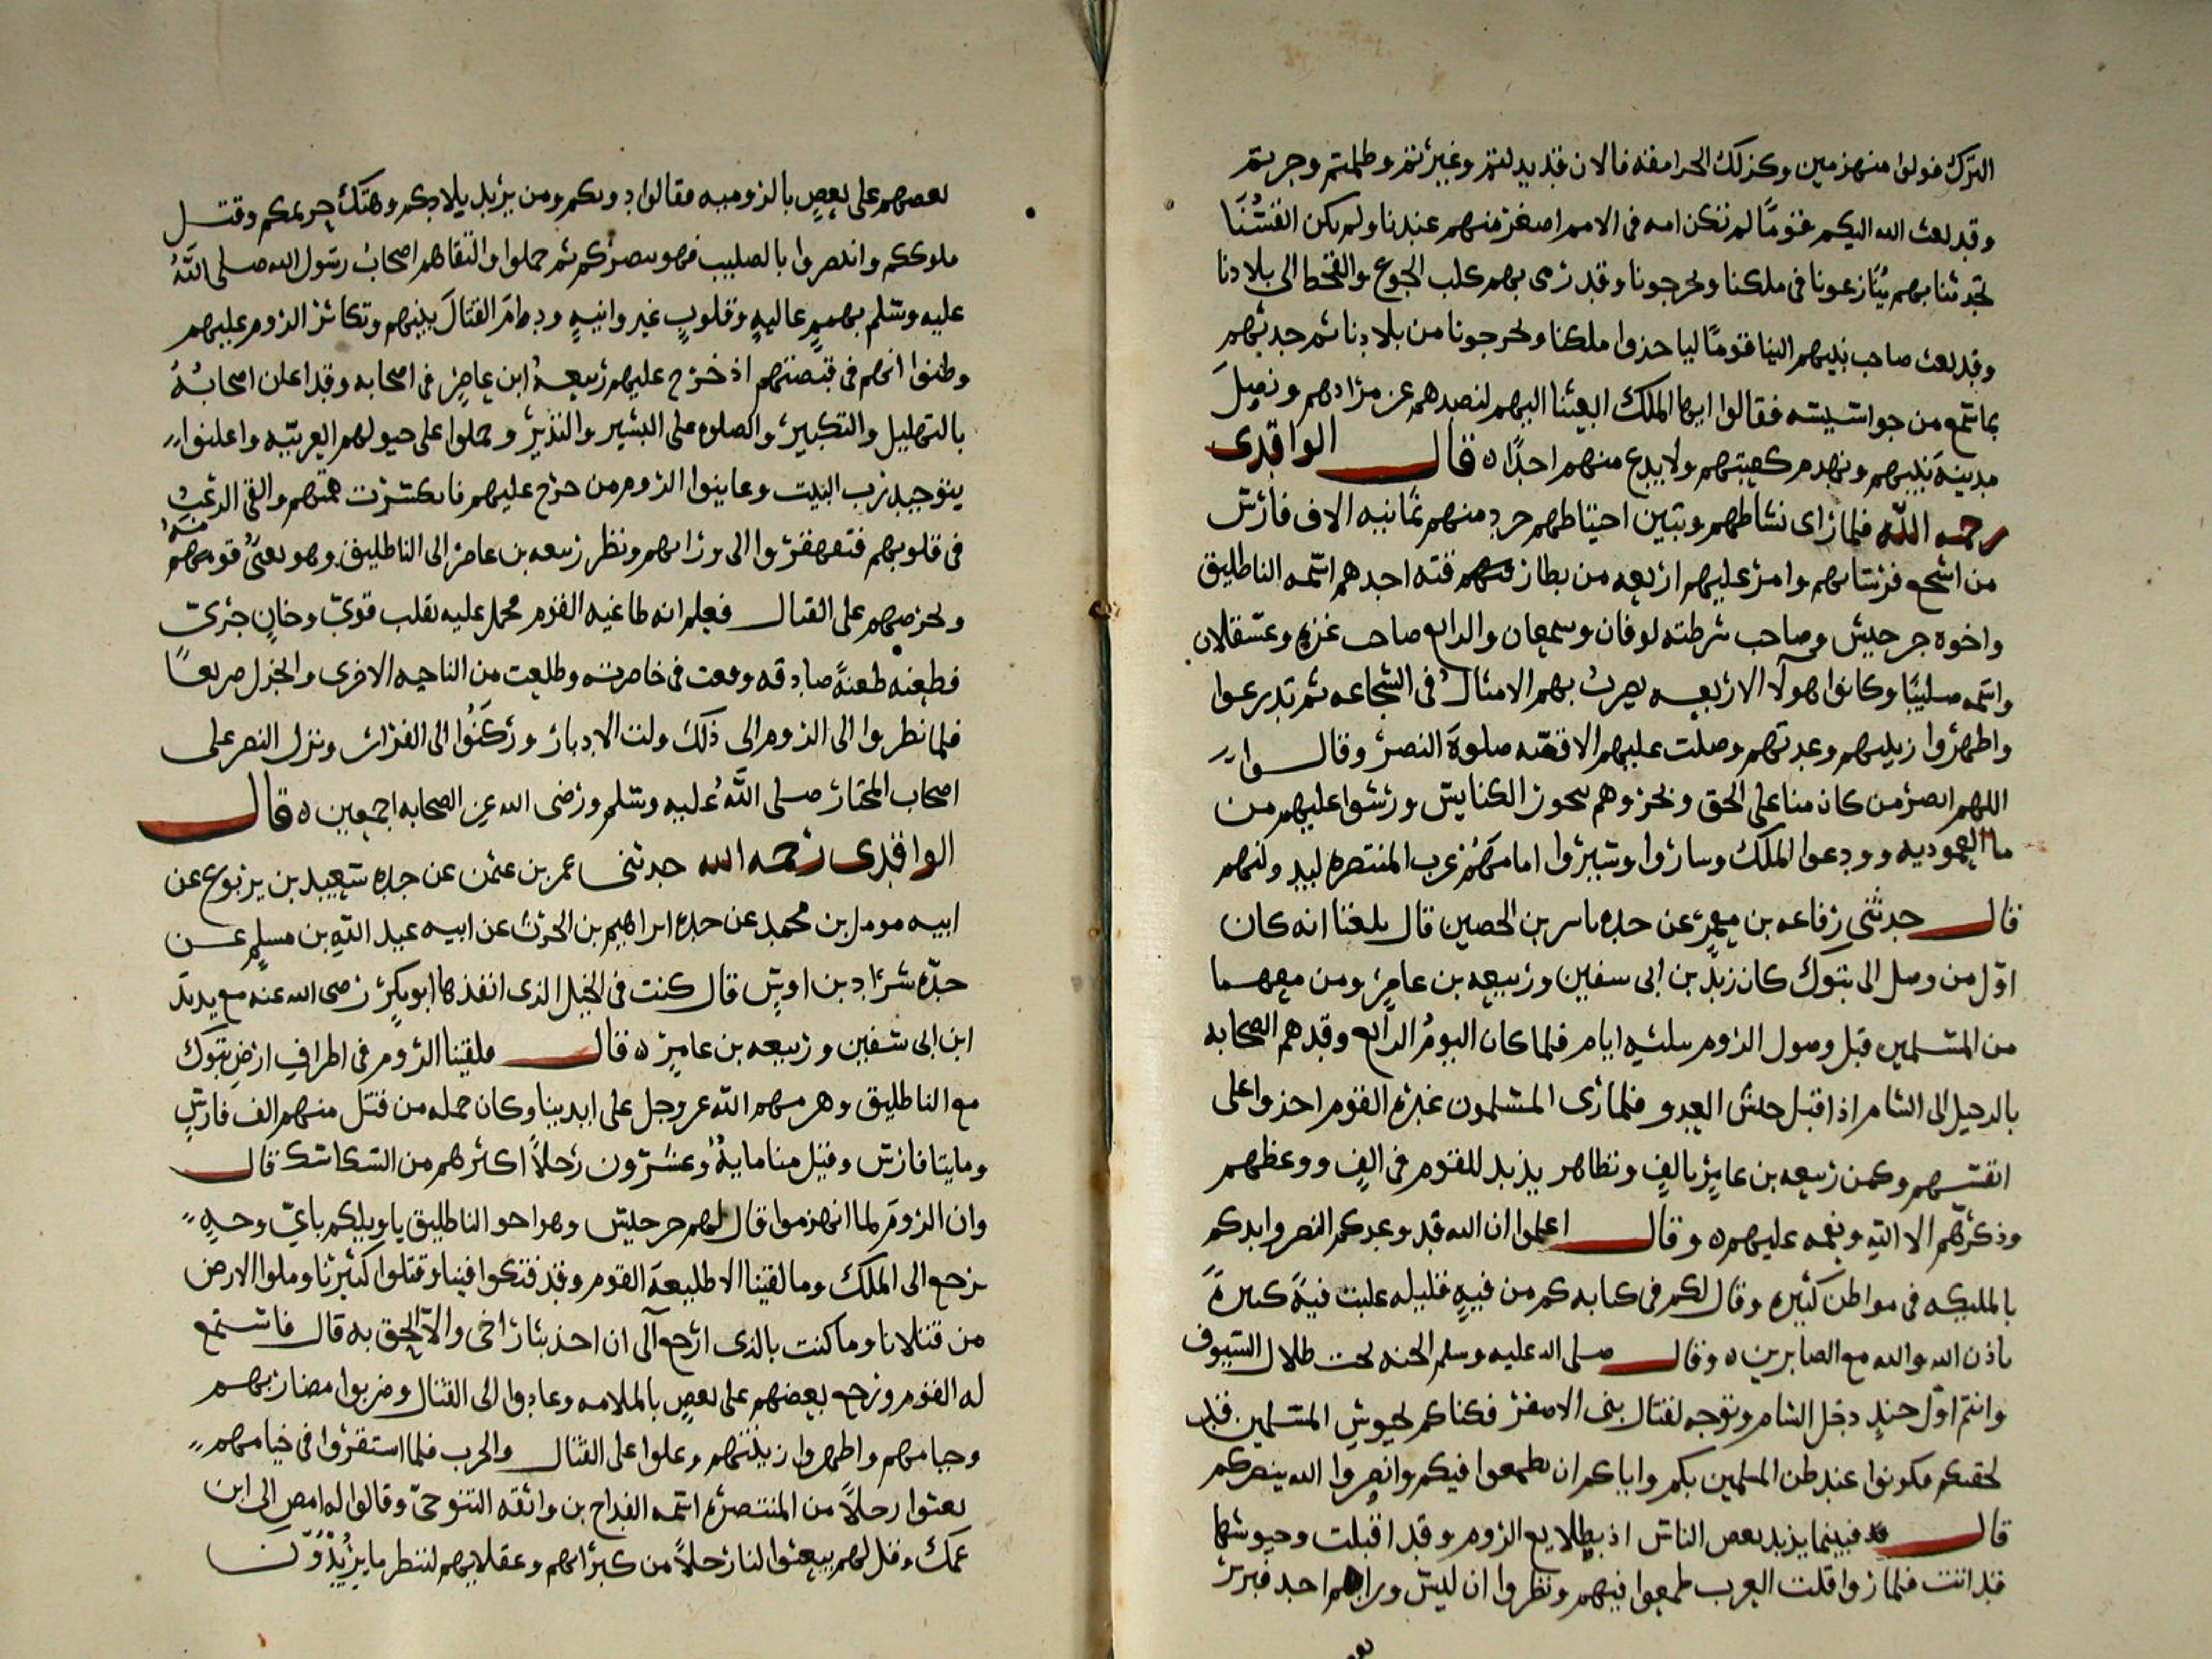 الترك فولوا منهزمين وكذلك الجرامقه فالان قد بدلتم وغيرتم وظلمتم وجرتم
وقد بعث الله اليكم قومًا لم تكن امه في الامم اصغر منهم عندنا ولم تكن انفسنا
تحدثنا بهم ينازعونا في ملكنا ويخرجونا وقد رمى بهم كلب الجوع والقحط الى بلادنا
وقد بعث صاحب نبيهم الينا قومًا لياخذوا ملكنا ويخرجونا من بلادنا ثم حدثهم
بما سمع من جواسيسه فقالوا ايها الملك ابعثنا اليهم لنصدهم عن مرادهم ونصل
مدينة نبيهم ونهدم كعبتهم ولا يدع منهم احدًا ه قال الواقدى
رحمه الله فلما راى نشاطهم وتبين احتياطهم جرد منهم ثمانيه الاف فارس
من اشجع فرسانهم وامر عليهم اربعه من بطارقته احدهم اسمه الناطليق
واخوه جرجيس وصاحب شرطته لوقان وسمعان والرابع صاحب غزه وعسقلان
واسمه صليبًا وكانوا هولا الاربعه يضرب بهم الامثال في الشجاعه ثم تدرعوا
واظهروا زينتهم وعدتهم وصلت عليهم الاقسه صلوة النصر وقالوا
اللهم انصر من كان منا على الحق وبخروهم ببخور الكنايس ورشوا عليهم من
ما المعموديه وودعوا الملك وساروا وسيروا امامهم عرب المنتصره ليدلونهم
قال حدثني رفاعه بن معمر عن جده ياسر بن الحصين قال بلغنا انه كان
اول من وصل الى تبوك كان يزيد بن ابى سفين وربيعه بن عامر ومن معهما
من المسلمين قبل وصول الروم بثلثه ايام فلما كان اليوم الرابع وقد هم الصحابه
بالرحيل الى الشام اذ اقبل جيش العدو فلما راى المسلمون غبرة القوم اخذوا على
انفسهم وكمن ربيعه بن عامر بالفٍ وتظاهر يزيد للقوم في الفٍ ووعظهم
وذكرهم الا الله ونعمه عليهم ه وقال اعلموا ان الله قد وعدكم النصر وايدكم
بالمليكه في مواطن كثيره وقال لكم في كتابه كم من فيةٍ قليله غلبت فيةً كبيرةً
باذن الله والله مع الصابرين ه وقال صلى الله عليه وسلم الجنه تحت ظلال السيوف
وانتم اول جندٍ دخل الشام وتوجه لقتال بنى الاصفر فكانكم بجيوش المسلمين قد
لحقتكم فكونوا عند ظن المسلمين بكم واياكم ان يطمعوا فيكم وانصروا الله ينصركم
قال فبينما يزيد يعض الناس اذ بطلايع الروم وقد اقبلت وجيوشها
قد اتت فلما راوا قلت العرب طمعوا فيهم ونظروا ان ليس وراهم احد فبربر
بعضهم على بعض بالروميه فقالوا دونكم ومن يريد بلادكم وهتك حريمكم وقتل
ملوككم وانصروا بالصليب فهو ينصركم ثم حملوا والتقاهم اصحاب رسول الله صلى الله
عليه وسلم بهممٍ عاليهٍ وقلوبٍ غير وانيهٍ ودام القتال بينهم وتكاثر الروم عليهم
وظنوا انهم في قبضتهم اذ خرج عليهم ربيعه ابن عامر في اصحابه وقد اعلن اصحابه
بالتهليل والتكبير والصلوه على البشير والنذير وحملوا على خيولهم العربيه واعلنوا
بتوحيد رب البيت وعاينوا الروم من خرج عليهم فانكسرت همتهم والقى الرعب
في قلوبهم فتقهقروا الى ورايهم ونظر ربيعه بن عامر الى الناطليق وهو يعبى قومه
ويحرضهم على القتال فعلم انه طاغيه القوم فحمل عليه بقلب قوي وجانٍ جرى
فطعنه طعنةً صادقه وقعت في خاصرته وطلعت من الناحيه الاخرى وانجدل صريعًا
فلما نظروا الى الروم الى ذلك ولت الادبار وركنوا الى الفرار ونزل النصر على
اصحاب المختار صلى الله عليه وسلم ورضى الله عن الصحابه اجمعين ه قال
الواقدى رحمه الله حدثنى عمر بن عثمن عن جده سعيد بن يربوع عن
ابيه مومل بن محمد عن جده ابراهيم بن الحرث عن ابيه عبد الله بن مسلم عن
جده شداد بن اوس قال كنت في الخيل الذى انفذها ابو بكر رضى الله عنه مع يزيد
ابن ابى سفين وربيعه بن عامر ه قال فلقينا الروم في اطراف ارض تبوك
مع الناطليق وهزمهم الله عز وجل على ايدينا وكان جمله من قتل منهم الف فارس
ومايتا فارس وقتل منا ماية وعشرون رجلاً اكثرهم من السكاسك قال
وان الروم لما انهزموا قال لهم جرجيس وهو اخو الناطليق يا ويلكم باي وجهٍ
نرجع الى الملك وما لقينا الا طليعة القوم وقد فتكوا فينا وقتلوا كثيرنا وملوا الارض
من قتلانا وما كنت بالذى ارجع الى ان اخذ بثار اخى والا الحق به قال فاستمع
له القوم ورجع بعضهم على بعضٍ بالملامه وعادوا الى القتال وضربوا مضاربهم
وخيامهم واظهروا زينتهم وعلوا على القتال والحرب فلما استقروا في خيامهم
بعثوا رجلاً من المنتصره اسمه القداح بن واثقه التنوخي وقالوا له امض الى ابن
عمك وقل لهم يبعثوا لنا رجلاً من كبرايهم وعقلايهم لننظر ما يريدون